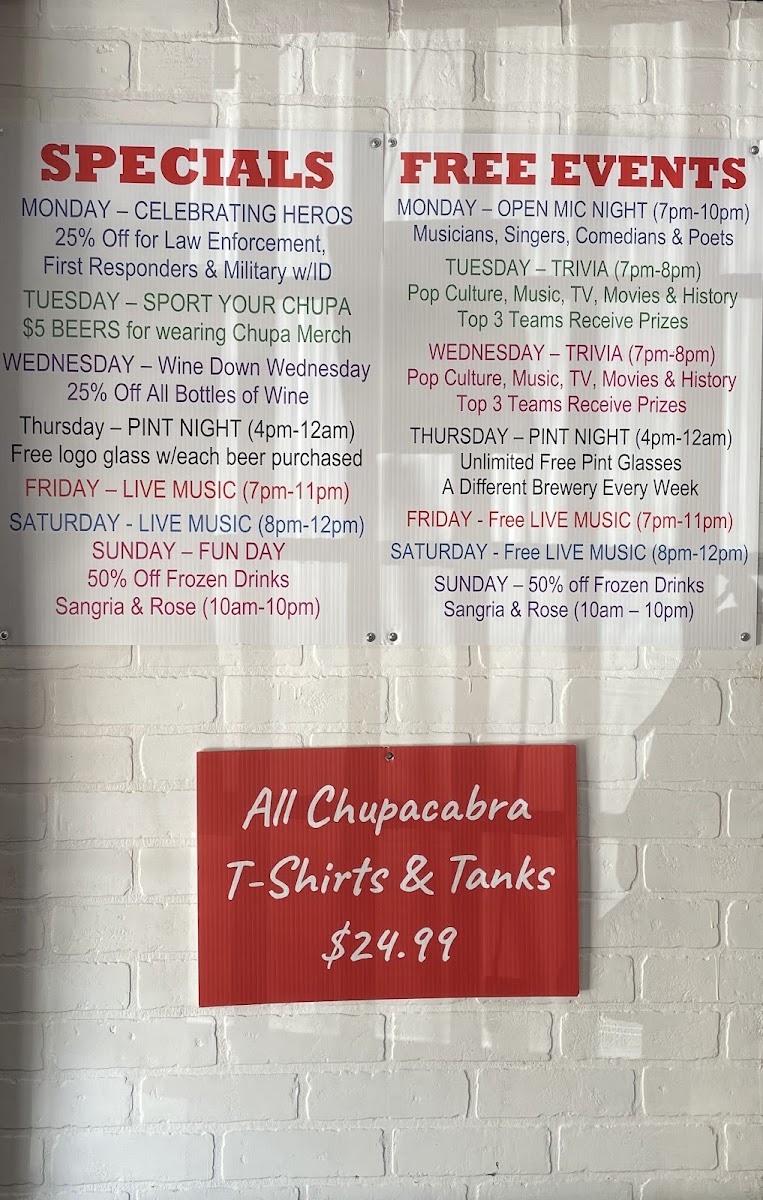 SPECIALS
MONDAY – CELEBRATING HEROS
25% Off for Law Enforcement,
First Responders & Military w/ID
TUESDAY – SPORT YOUR CHUPA
$5 BEERS for wearing Chupa Merch
WEDNESDAY – Wine Down Wednesday
25% Off All Bottles of Wine
Thursday – PINT NIGHT (4pm-12am)
Free logo glass w/each beer purchased
FRIDAY – LIVE MUSIC (7pm-11pm)
SATURDAY - LIVE MUSIC (8pm-12pm)
SUNDAY – FUN DAY
50% Off Frozen Drinks
Sangria & Rose (10am-10pm)
FREE EVENTS
MONDAY – OPEN MIC NIGHT (7pm-10pm)
Musicians, Singers, Comedians & Poets
TUESDAY – TRIVIA (7pm-8pm)
Pop Culture, Music, TV, Movies & History
Top 3 Teams Receive Prizes
WEDNESDAY – TRIVIA (7pm-8pm)
Pop Culture, Music, TV, Movies & History
Top 3 Teams Receive Prizes
THURSDAY – PINT NIGHT (4pm-12am)
Unlimited Free Pint Glasses
A Different Brewery Every Week
FRIDAY - Free LIVE MUSIC (7pm-11pm)
SATURDAY - Free LIVE MUSIC (8pm-12pm)
SUNDAY – 50% off Frozen Drinks
Sangria & Rose (10am – 10pm)
All Chupacabra
T-Shirts & Tanks
$24.99